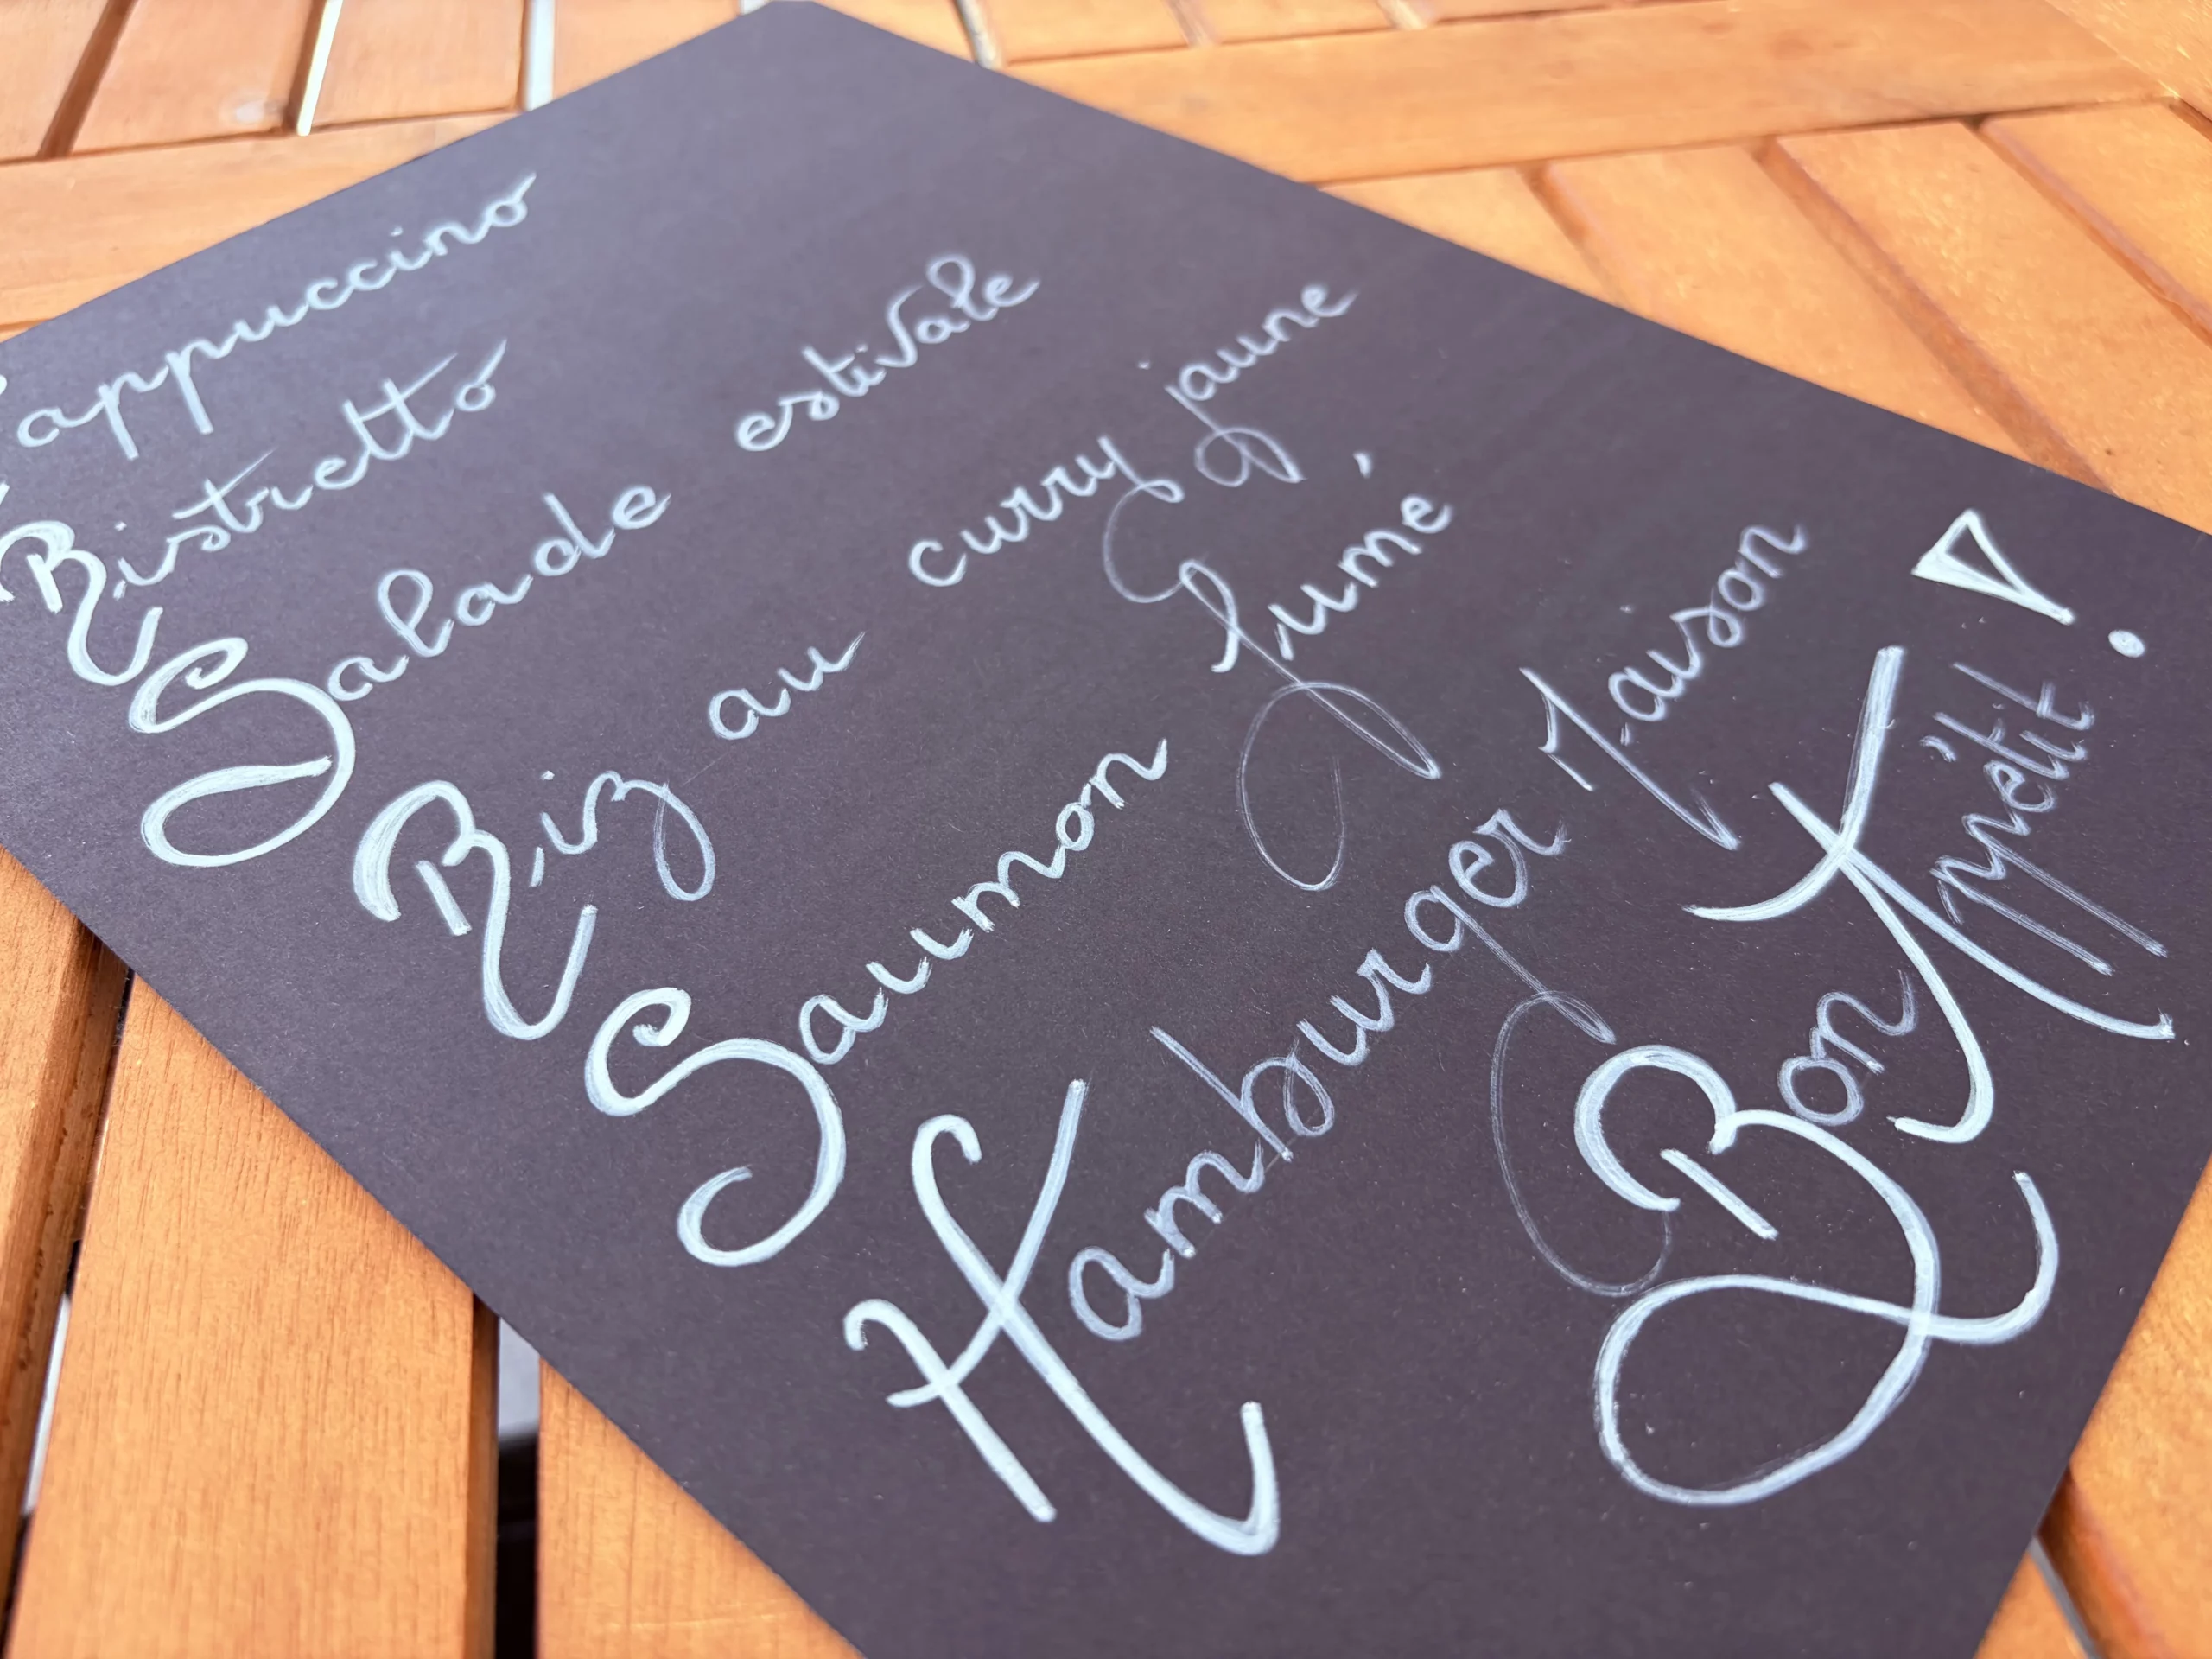 Cappuccino
Ristretto
Salade estivale
Riz au curry jaune
Saumon fumé
Hamburger Maison
Bon Appétit !